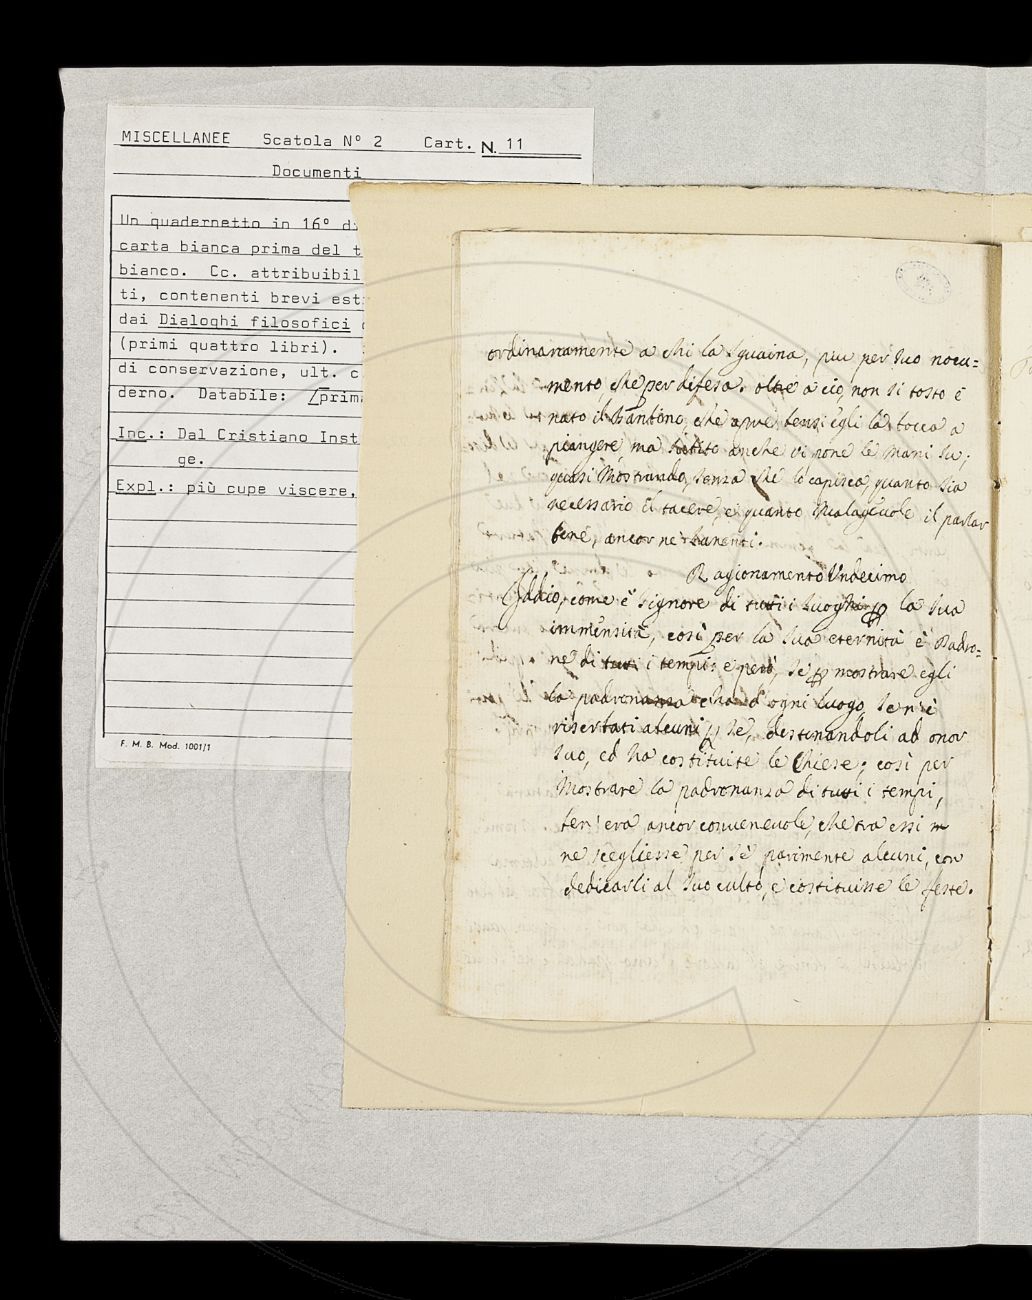 MISCELLANEE Scatola N° 2 Cart. N. 11
Documenti
Un quadernetto in 16° di
carta bianca prima del t
bianco. Cc. attribuibil
ti, contenenti brevi est
dai Dialoghi filosofici
(primi quattro libri).
di conservazione, ult. c
derno. Databile: /prim
Inc.: Dal Cristiano Inst
ge.
Expl.: più cupe viscere,
F. M. B. Mod. 1001/1
ordinariamente a chi la sguaina, piu per suo nocu=
mento, che per difesa. oltre a ciò, non si tosto è
nato il Bambino, che apre bensì egli la bocca a
piangere, ma subito anche vi pone le mani su;
quasi Mostrando, senza che lo capisca, quanto sia
necessario il tacere, e quanto Malagevole il parlar
bene, ancor ne
Ragionamento Undecimo
Iddio, come è signore di tutti i luoghi la sua
immensità, così per la sua eternità è Padro=
ne di tutti i tempi: e però, se mostrare egli
la padronanza che ha d'ogni luogo, se n'è
riserbati alcuni p Sè, destinandoli ad onor
suo, ed ha costituite le Chiese; così per
Mostrare la padronanza di tutti i tempi,
ben'era ancor convenevole, che tra essi
ne scegliesse per Sè parimente alcuni, con
dedicarli al suo culto, e costituisse le feste.